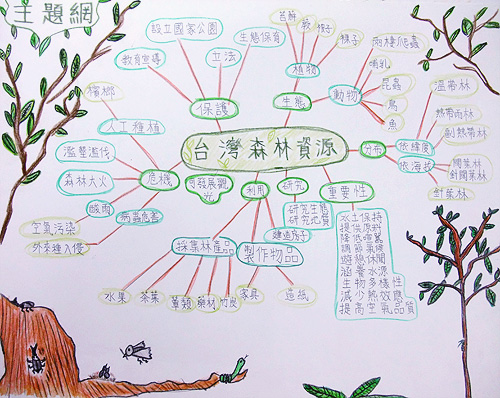 主題網
台灣森林資源
保護
設立國家公園
教育宣導
立法
生態保育
生態
植物
苔蘚
蕨
裸子
動物
兩棲爬蟲
哺乳
昆蟲
鳥
魚
分布
依緯度
溫帶林
熱帶雨林
副熱帶林
依海拔
闊葉林
針闊葉林
針葉林
重要性
水土保持
提供原料
調節氣候
遊憩休閒
涵養水源
生物多樣性
減少熱效應
提高空氣品質
研究
研究生態
利用
採集林產品
水果
茶葉
藥材
竹炭
製作物品
建造房子
家具
造紙
危機
檳榔
人工種植
濫墾濫伐
森林大火
酸雨
空氣污染
外來種入侵
病蟲危害